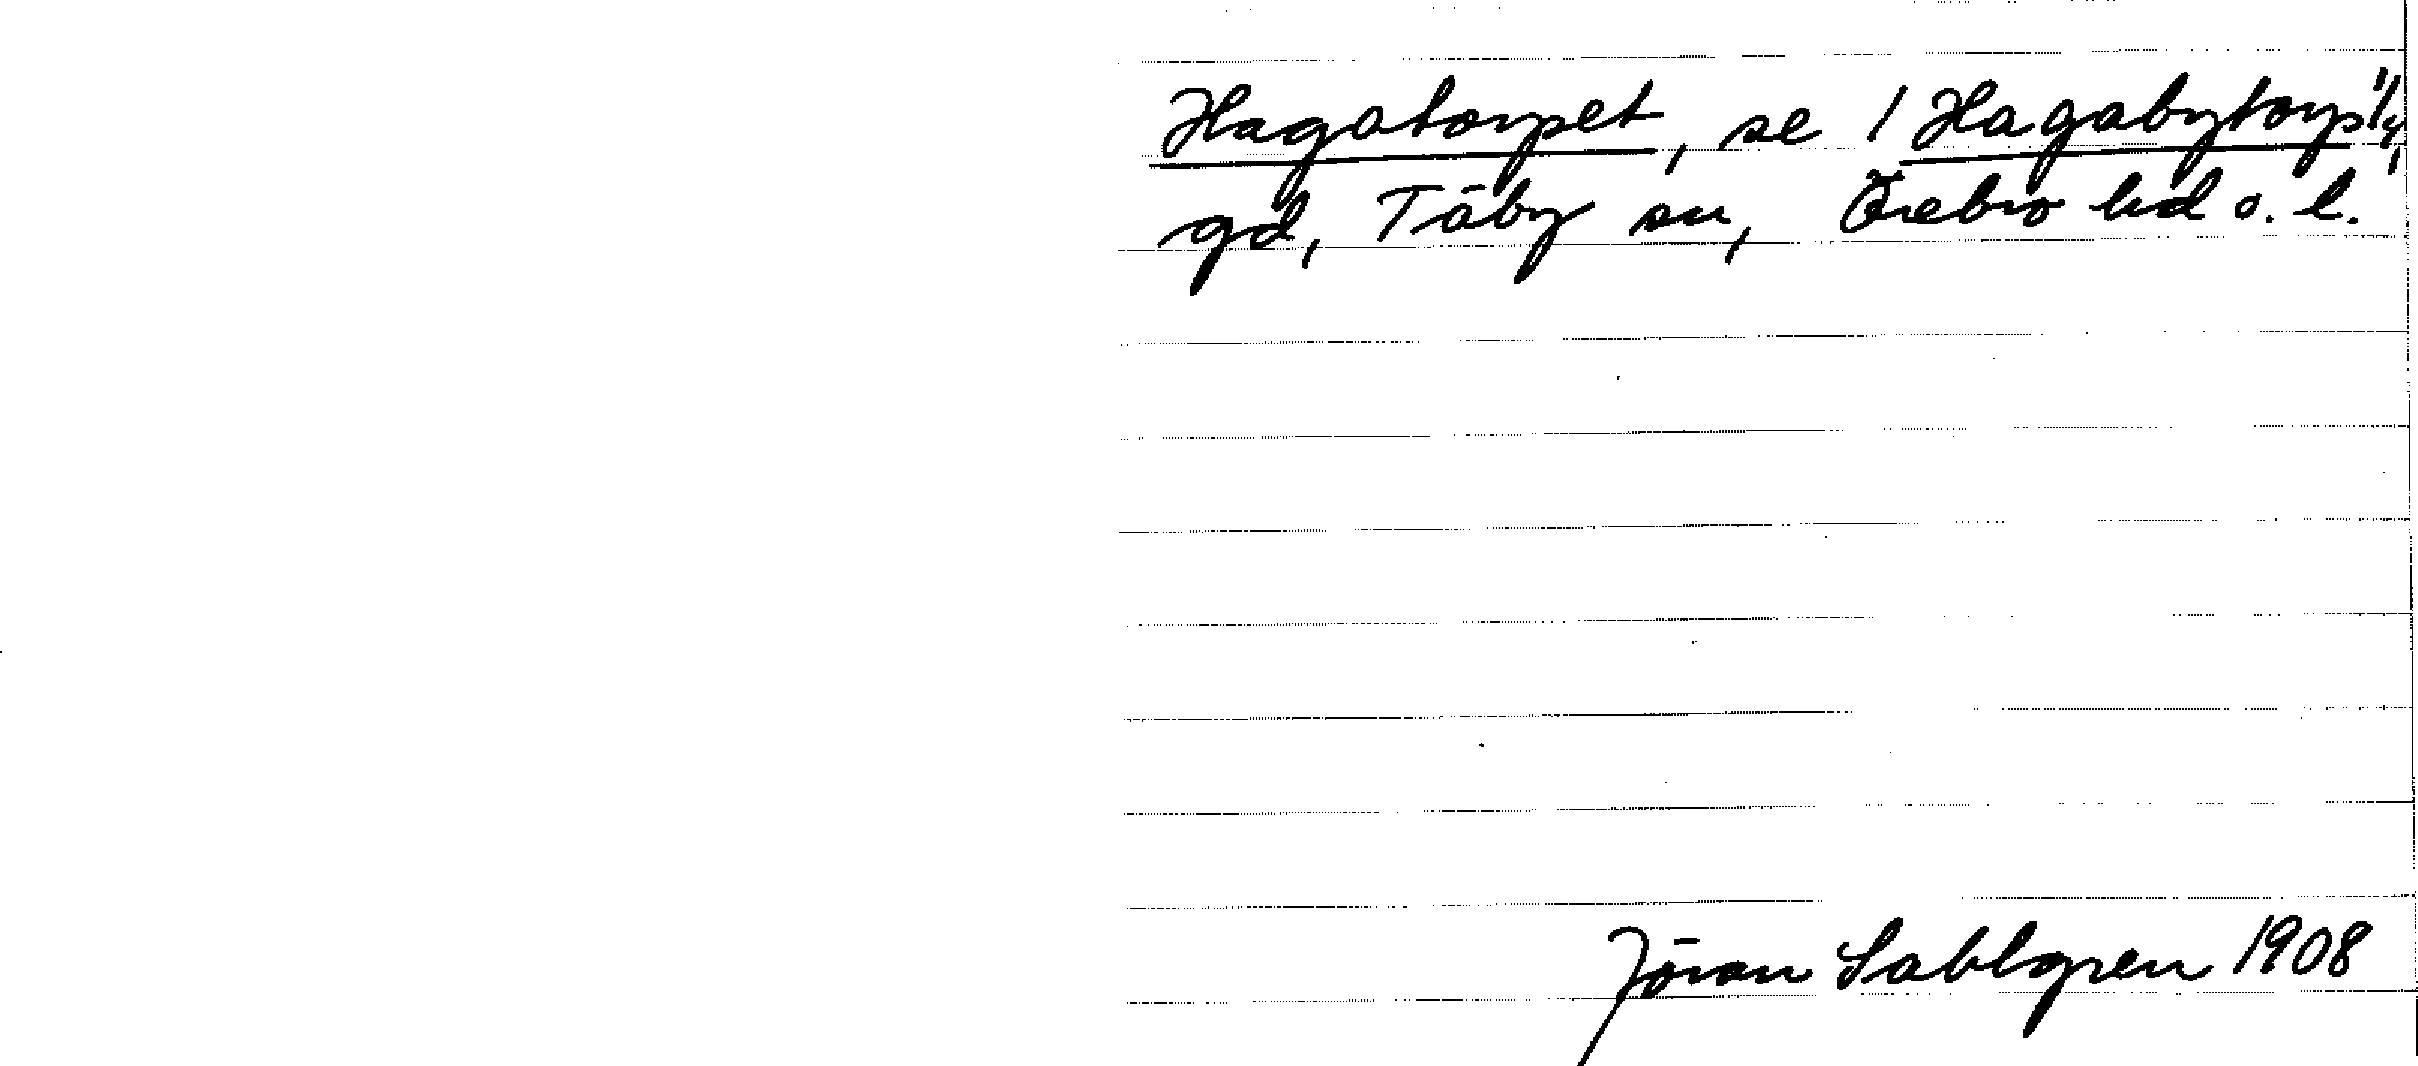 Hagatorpet, se 1 Hagabytorp 1/4,
gd, Täby sn, Örebro hd o. l.
Jöran Sahlgren 1908